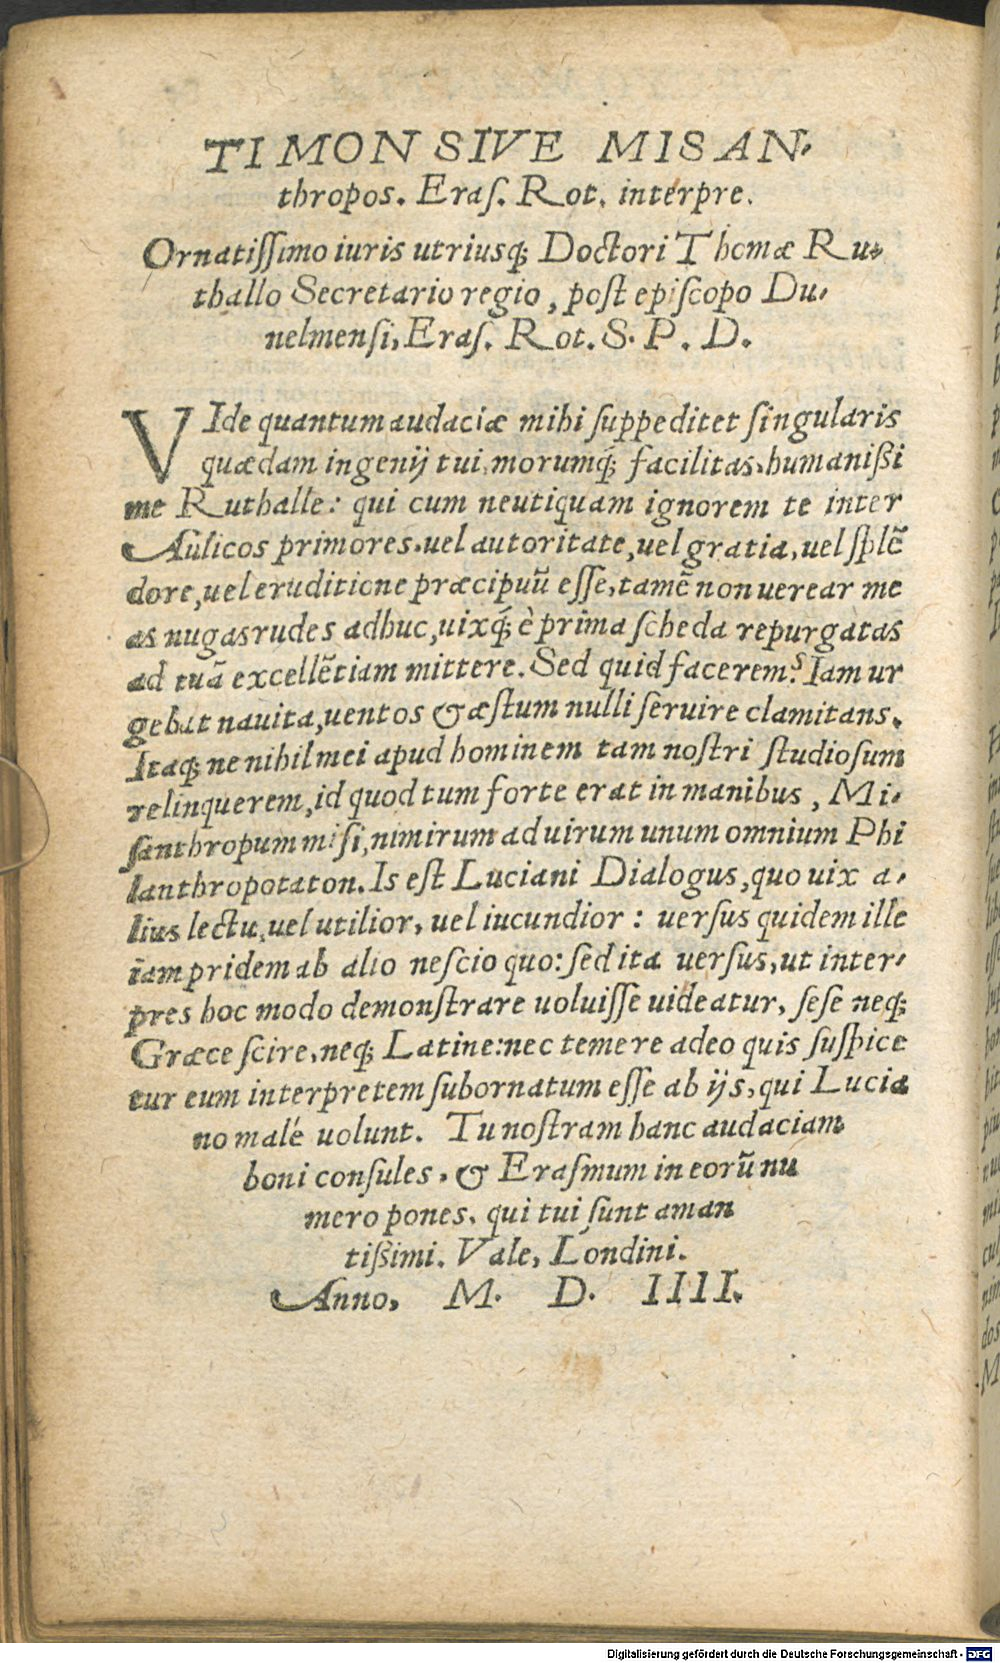 TIMON SIVE MISAN-
thropos. Eraſ. Rot. interpre.
Ornatiſſimo iuris utriusq; Doctori Thomæ Ru-
thallo Secretario regio, poſt epiſcopo Du-
nelmenſi, Eraſ. Rot. S. P. D.
VIde quantum audaciæ mihi ſuppeditet ſingularis
quædam ingenij tui, morumq; facilitas, humanißi
me Ruthalle: qui cum neutiquam ignorem te inter
Aulicos primores, uel autoritate, uel gratia, uel ſplē
dore, uel eruditione præcipuū eſſe, tamē non uerear me
as nugas rudes adhuc, uixq́; è prima ſcheda repurgatas
ad tuā excellētiam mittere. Sed quid facerem? Iam ur
gebat nauita, uentos & æſtum nulli ſeruire clamitans.
Itaq; ne nihil mei apud hominem tam noſtri ſtudioſum
relinquerem, id quod tum forte erat in manibus, Mi-
ſanthropum miſi, nimirum ad uirum unum omnium Phi
lanthropotaton. Is eſt Luciani Dialogus, quo uix a-
lius lectu, uel utilior, uel iucundior: uerſus quidem ille
iam pridem ab alio neſcio quo: ſed ita uerſus, ut inter-
pres hoc modo demonſtrare uoluiſſe uideatur, ſeſe neq;
Græce ſcire, neq; Latine: nec temere adeo quis ſuſpice
tur eum interpretem ſubornatum eſſe ab ijs, qui Lucia
no malè uolunt. Tu noſtram hanc audaciam
boni conſules, & Eraſmum in eorū nu
mero pones, qui tui ſunt aman
tißimi. Vale, Londini.
Anno, M. D. IIII.
Digitalisierung gefördert durch die Deutsche Forschungsgemeinschaft - DFG